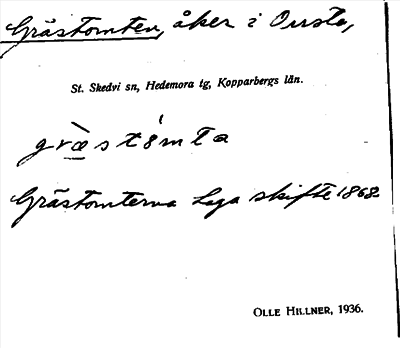 Gråstomten, åker i Onsta,
St. Skedvi sn, Hedemora tg, Kopparbergs län.
Gråstomterna Laga skifte 1868
OLLE HILLNER, 1936.